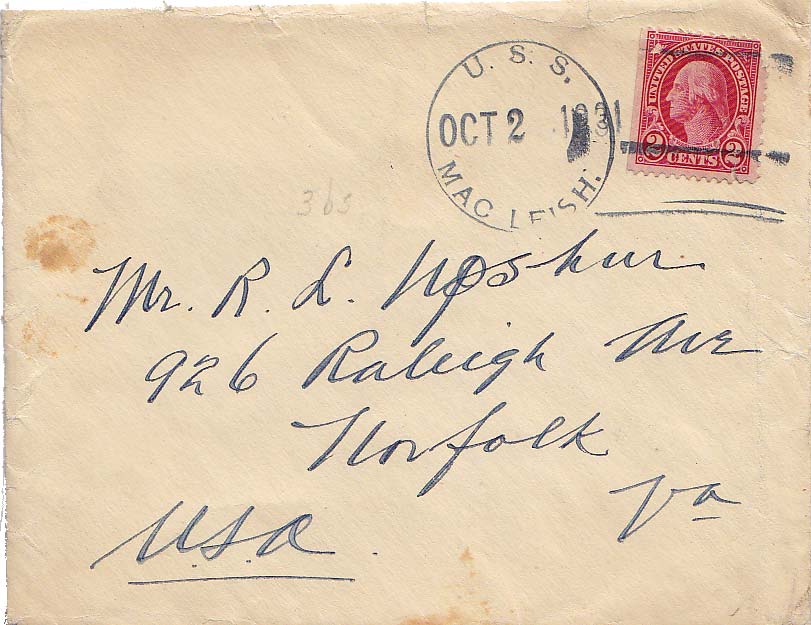 U. S. S.
OCT 2 1931
MAC LEISH.
UNITED STATES POSTAGE
2 CENTS 2
365
Mr. R. L. Upshur
926 Raleigh Ave
Norfolk
Va
U.S.A.